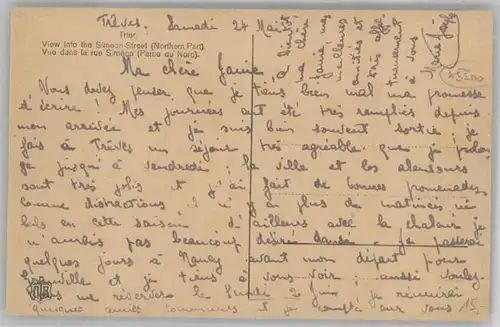 Trèves. Samedi 24 Mai
Trier
View into the Simeon-Street (Northern Part).
Vue dans la rue Siméon (Partie du Nord).
Ma chère Jamie
Vous devez penser que je tiens bien mal ma promesse
d'écrire ! Mes journées ont été très remplies depuis
mon arrivée et je suis bien souvent sortie, je
fais à Trèves un séjour très agréable que je prolon
ge jusqu'à vendredi, la ville et les alentours
sont très jolis et j'ai fait de bonnes promenades.
Comme distractions il n'y a plus de matinées ni
bals en cette saison d'ailleurs avec la chaleur je
n'aurais pas beaucoup désiré danser. Je passerai
quelques jours à Nancy avant mon départ pour
Granville et je tiens à vous voir, aussi voulez-
vous me réserver le lundi 2 Juin, je réunirai
quelques amies communes et je compte sur vous
à bientôt
ma chère
Jamie mes
meilleures
amitiés et
très affec
tueusement
à vous
15,-